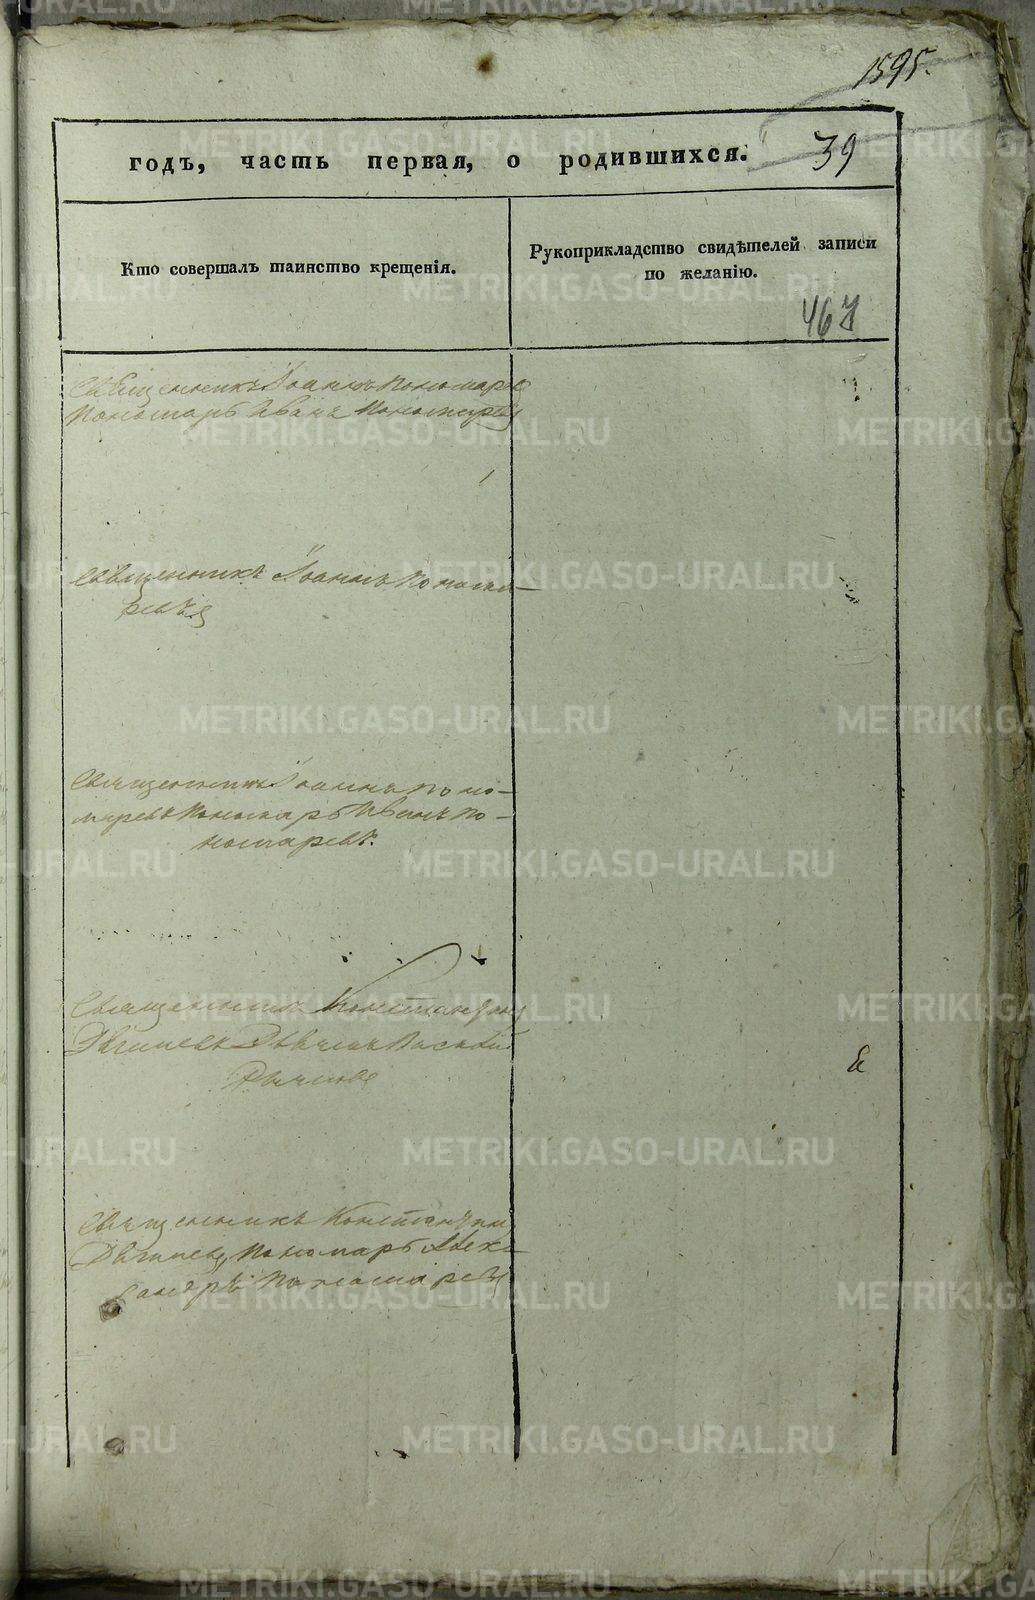 1595.
годъ, часть первая, о родившихся.
39
Кто совершалъ таинство крещенія.
Рукоприкладство свидѣтелей записи
по желанію.
467
Священникъ Іоаннъ Пономаревъ
Пономарь Иванъ Пономаревъ
Священникъ Іоаннъ Понома-
ревъ
Священникъ Іоаннъ Поно-
маревъ Пономарь Иванъ По-
номаревъ.
Священникъ Константинъ
Пономарь Алек-
сандръ Пономаревъ
Священникъ Константинъ
METRIKI.GASO-URAL.RU